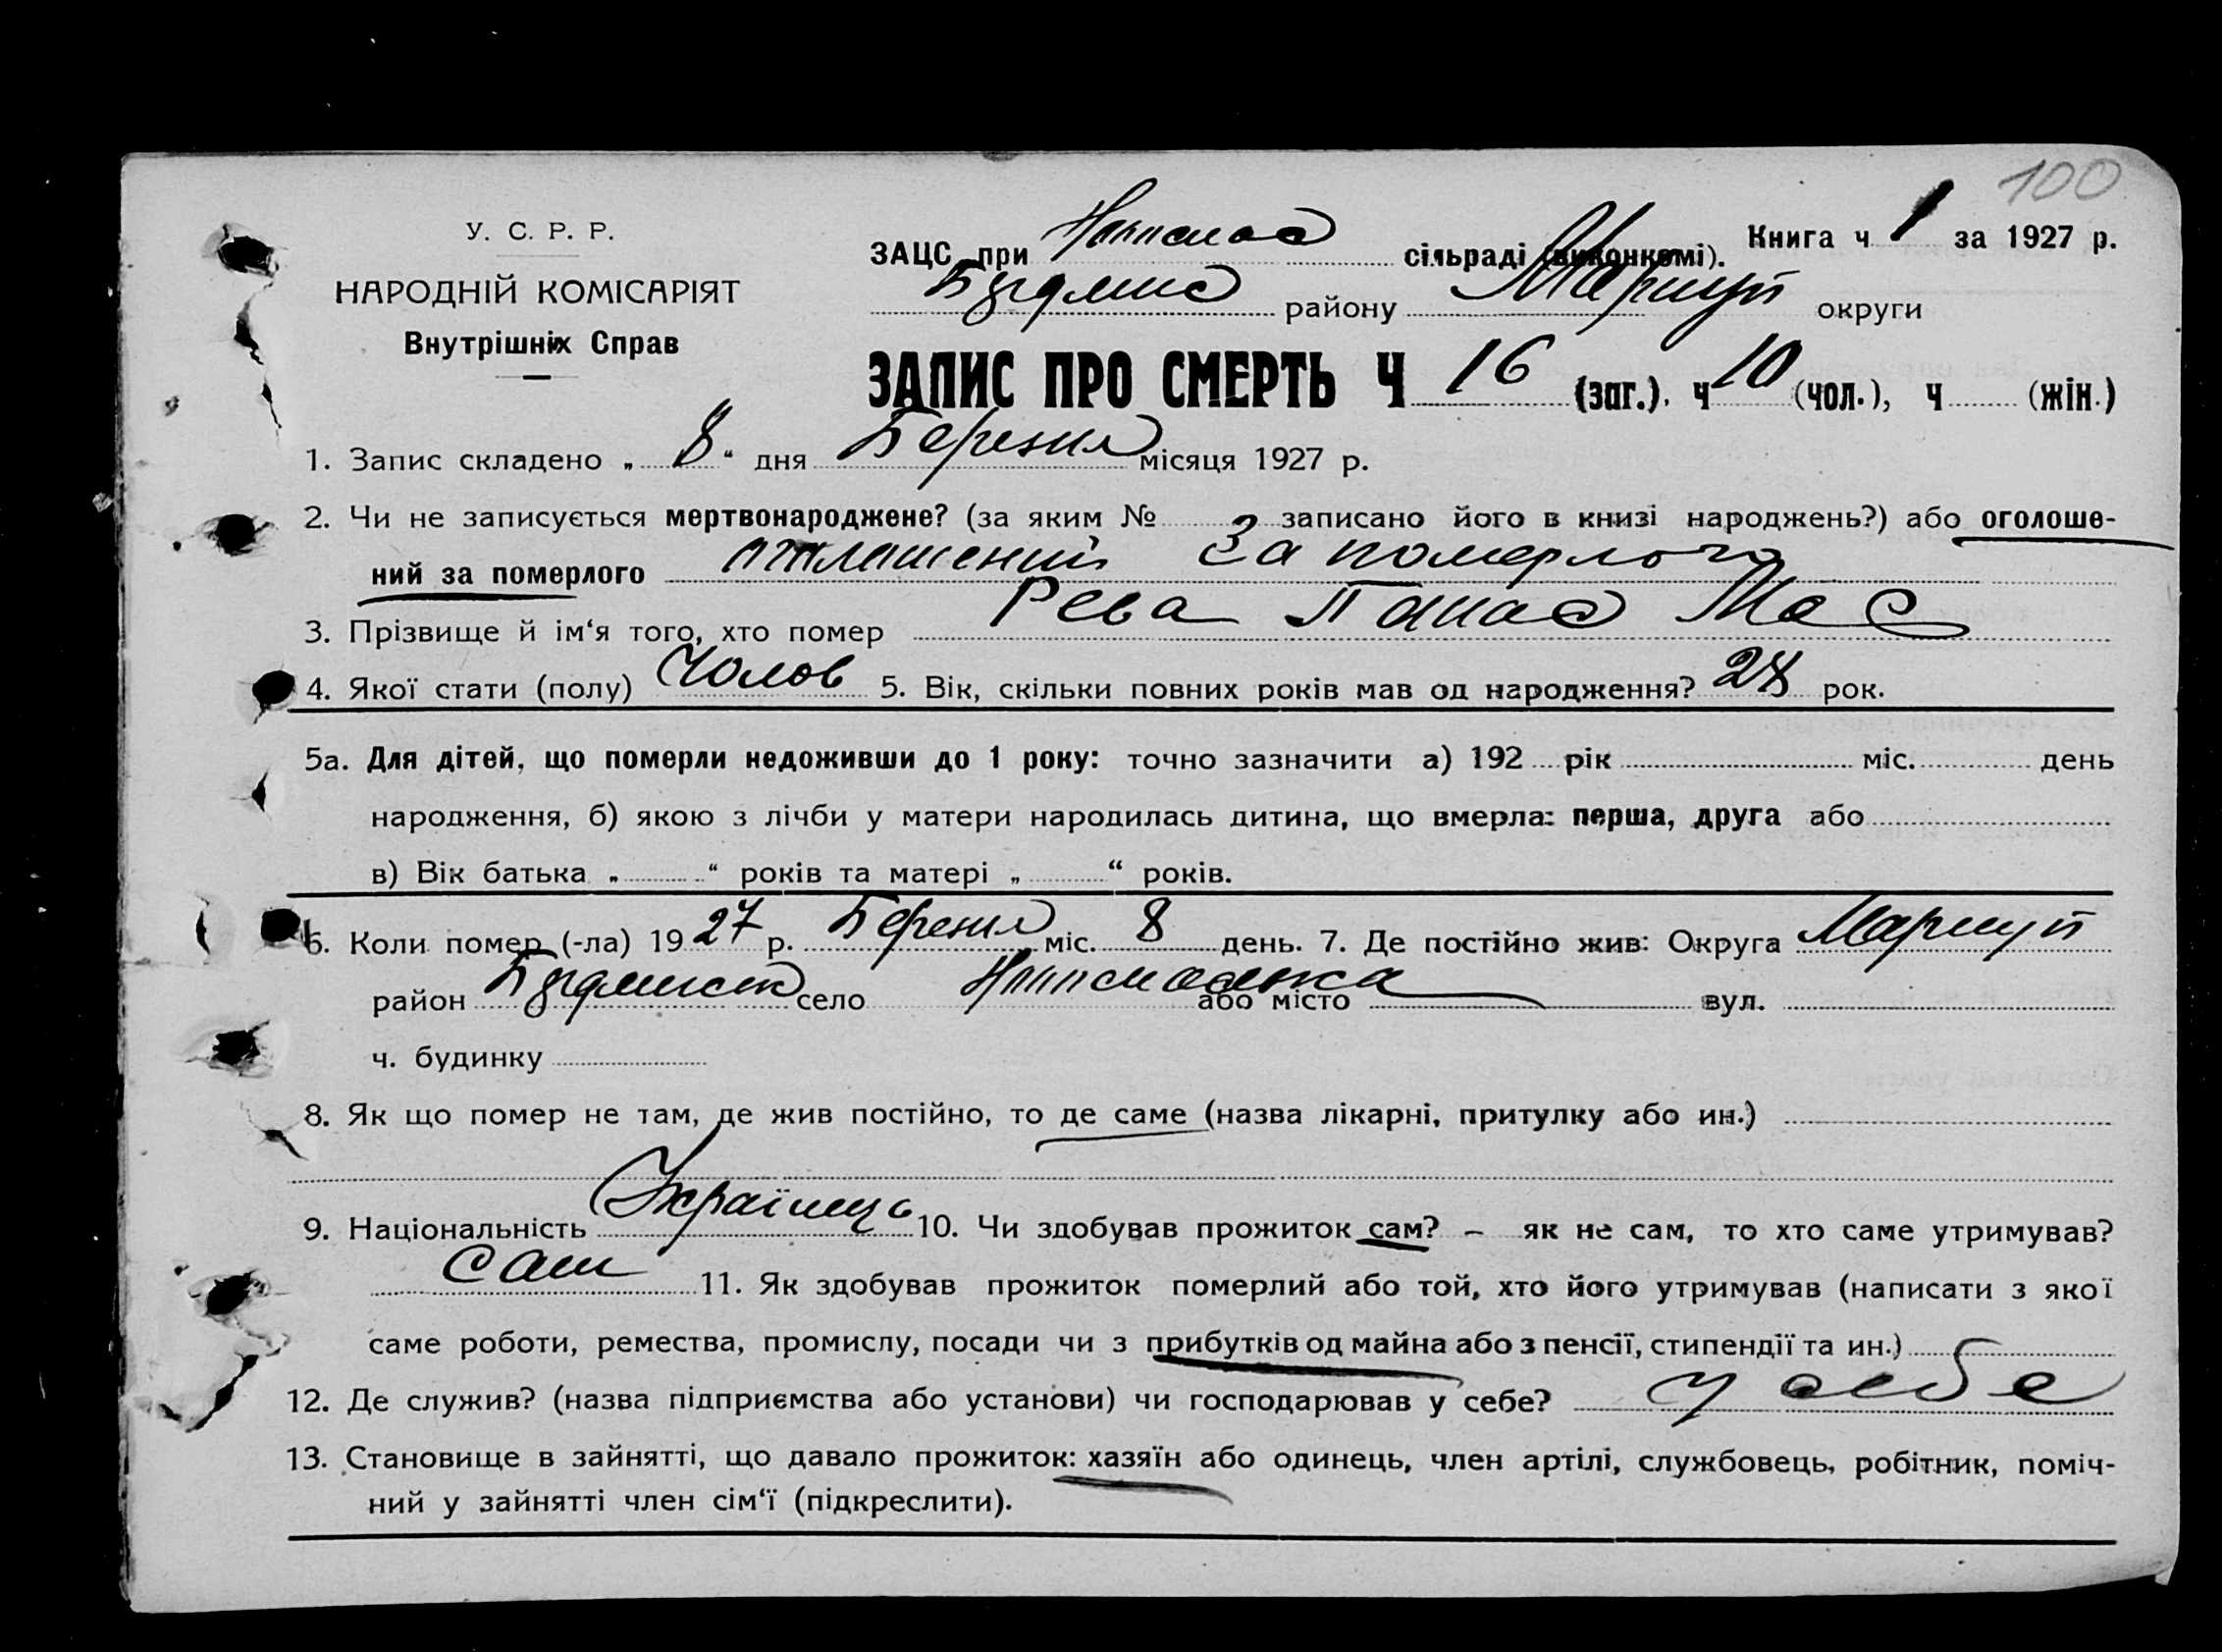 100
У. С. Р. Р.
НАРОДНІЙ КОМІСАРІЯТ
Внутрішніх Справ
ЗАЦС при сільраді (виконкомі). Книга ч 1 за 1927 р.
району Маріуп округи
ЗАПИС ПРО СМЕРТЬ Ч 16 (заг.). ч 10 (чол.), ч (жін.)
1. Запис складено „ 8 “ дня Березня місяця 1927 р.
2. Чи не записується мертвонароджене? (за яким № записано його в книзі народжень?) або оголоше-
ний за померлого за померлого
3. Прізвище й ім‘я того, хто помер Рева Панас
4. Якої стати (полу) Чолов 5. Вік, скільки повних років мав од народження? рок.
5а. Для дітей, що померли недоживши до 1 року: точно зазначити а) 192 рік міс. день
народження, б) якою з лічби у матери народилась дитина, що вмерла: перша, друга або
в) Вік батька „ “ років та матері „ “ років.
6. Коли помер (-ла) 19 27 р. Березня міс. 8 день. 7. Де постійно жив: Округа Маріуп
район село або місто вул.
ч. будинку
8. Як що помер не там, де жив постійно, то де саме (назва лікарні, притулку або ин.)
9. Національність Українець 10. Чи здобував прожиток сам? – як не сам, то хто саме утримував?
сам 11. Як здобував прожиток померлий або той, хто його утримував (написати з якої
саме роботи, ремества, промислу, посади чи з прибутків од майна або з пенсії, стипендії та ин.)
12. Де служив? (назва підприємства або установи) чи господарював у себе? у себе
13. Становище в зайнятті, що давало прожиток: хазяїн або одинець, член артілі, службовець, робітник, поміч-
ний у зайнятті член сім‘ї (підкреслити).